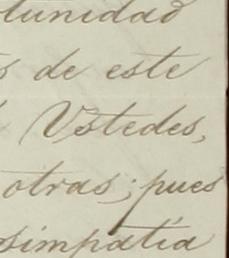 tunidad
s de este
Ustedes,
otras; pues
simpatía